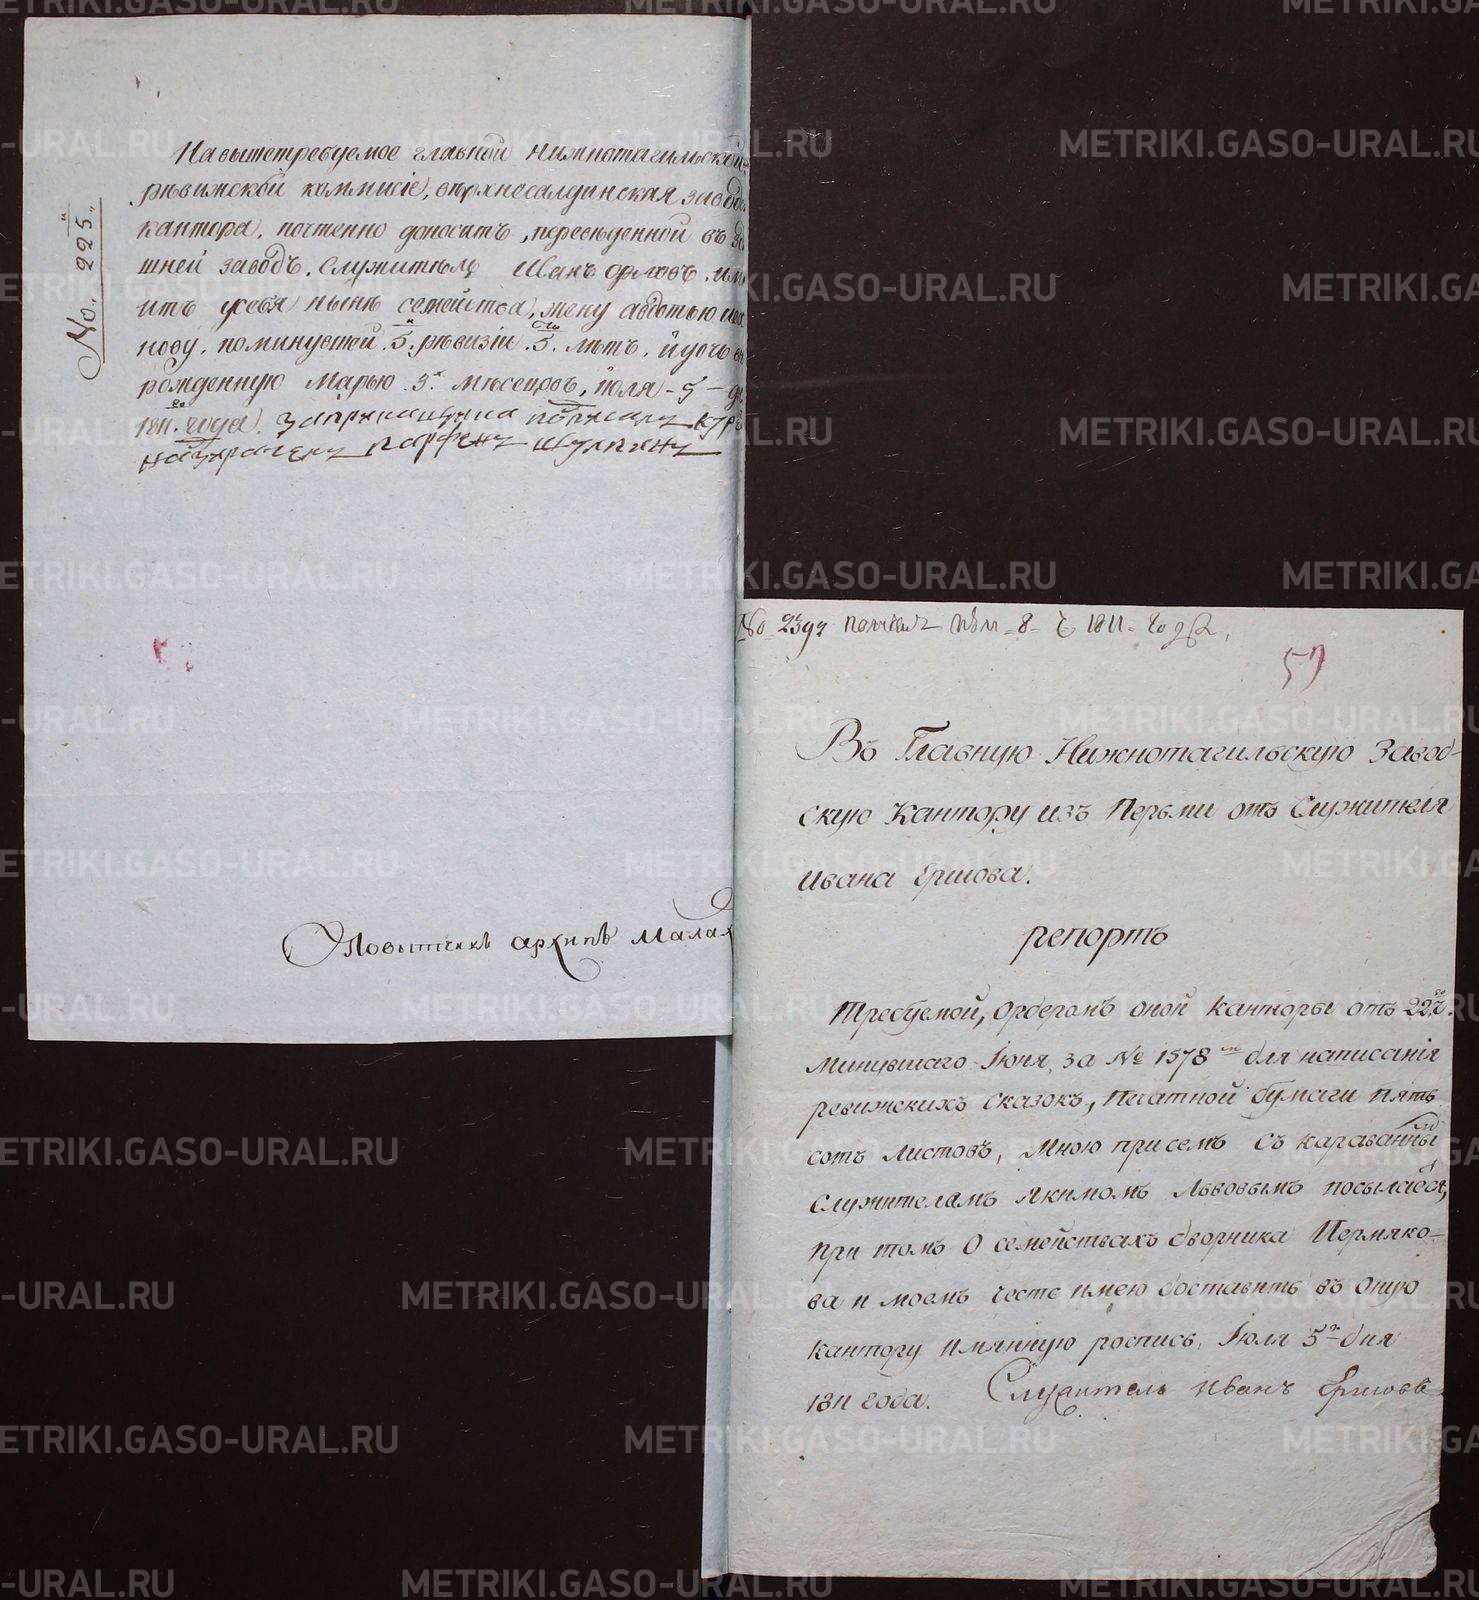 No. 225.
На вышетребуемое главной нижнотагильской
рѣвижской коммисіе, вѣрхнесалдинская завод
кантора, почтенно доноситъ, переведенной въ зд
шней заводъ, служитель орловъ, им
итъ усебя нынѣ семейства, жену авдотью ива
нову, поминувшей 5й рѣвизіи 5. лѣтъ, й дочь
рожденную Марью 3х мѣсецовъ, июля 5 д
1811го года.
Повытчикъ архипъ Мала
No 2392 получен июл 8 1811 года
57
Въ Главную Нижнотагильскую Завод-
скую Кантору изъ Перьми отъ Служителя
Ивана Ершова.
репортъ
Требуемой, Ордеромъ оной канторы отъ 22го
Минувшаго Іюня, за № 1578м для написанія
ревижскихъ сказокъ, Печатной бумаги пять
сотъ листовъ, Мною при семъ съ караванны
служителамъ Якимомъ Львовымъ посылается,
при томъ О семействахъ дворника Пермяко-
ва и моемъ честь имею доставить въ оную
кантору имянную роспись, Іюля 5го дня
1811 года. Служитель Иванъ Ершовъ
METRIKI.GASO-URAL.RU